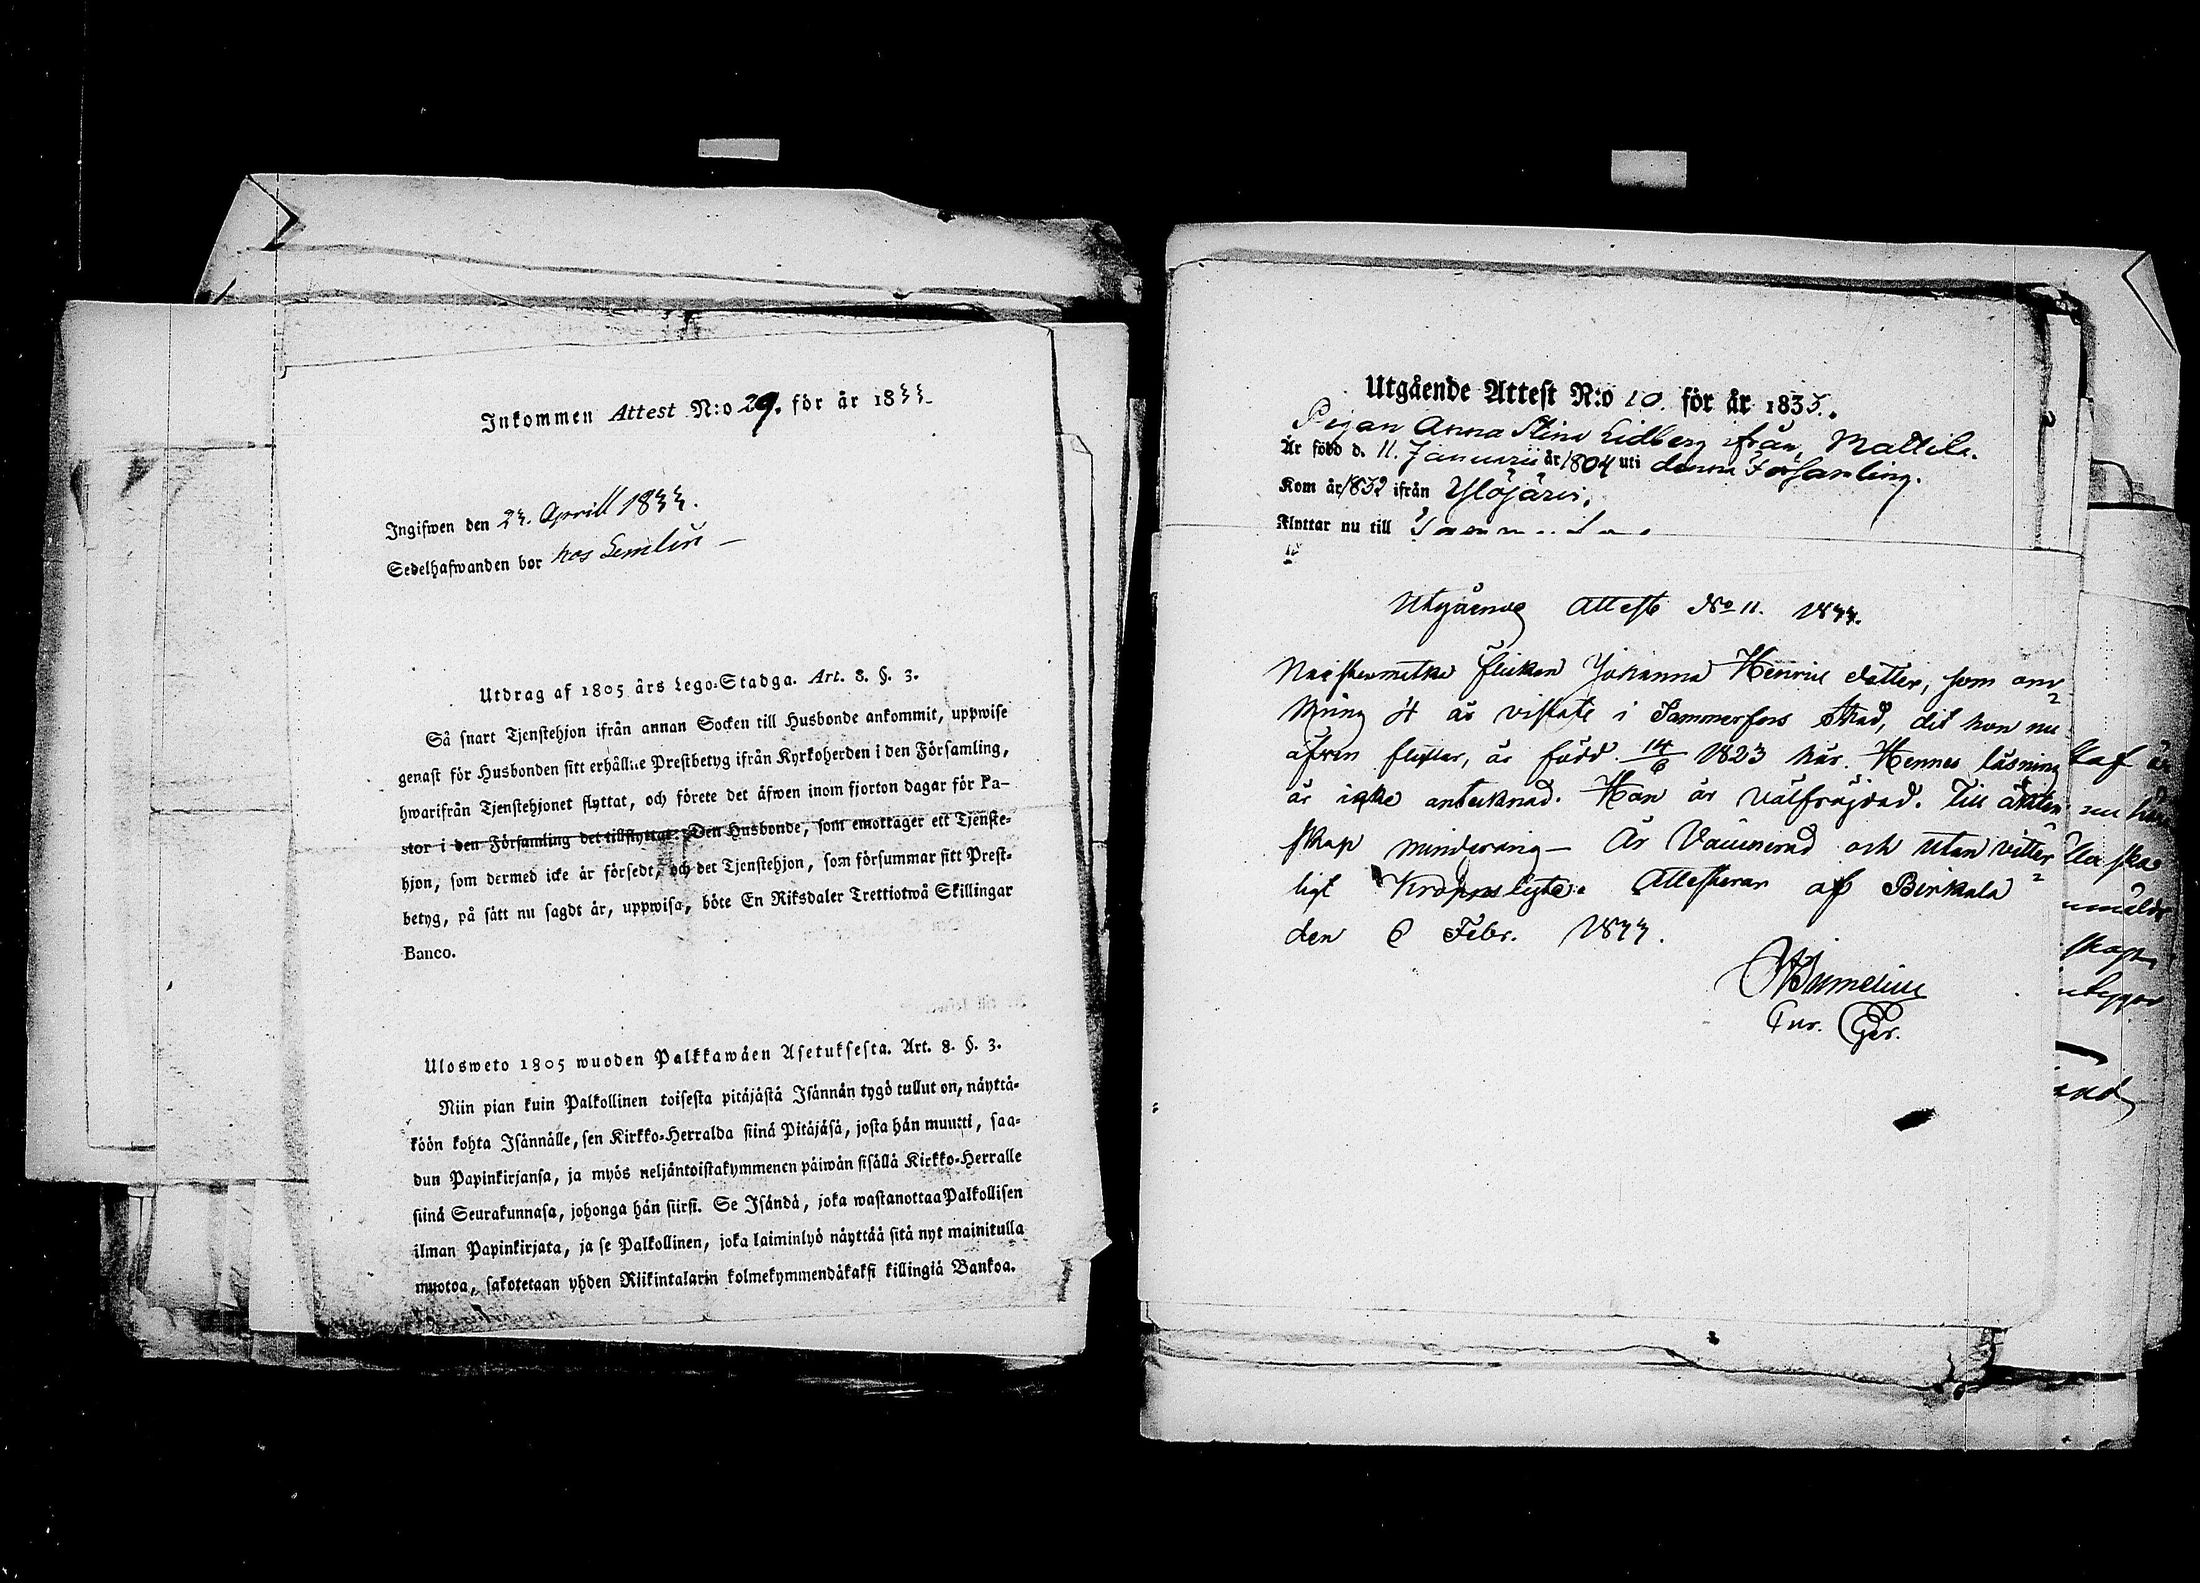 Inkommen Attest N:o 29. för år 1833.
Ingifwen den 23. Aprill 1833.
Sedelhafwanden bor hos Lemlin —
Utdrag af 1805 års Lego-Stadga. Art. 8. §. 3.
Så snart Tjenstehjon ifrån annan Socken till Husbonde ankommit, uppwise
genast för Husbonden sitt erhållne Prestbetyg ifrån Kyrkoherden i den Församling,
hwarifrån Tjenstehjonet flyttat, och förete det äfwen inom fjorton dagar för Pa-
stor i den Församling det tillflyttat. Den Husbonde, som emottager ett Tjenste-
hjon, som dermed icke är försedt, och det Tjenstehjon, som försummar sitt Prest-
betyg, på sätt nu sagdt är, uppwisa, böte En Riksdaler Trettiotwå Skillingar
Banco.
Ulosweto 1805 wuoden Palkkawäen Asetuksesta. Art. 8. §. 3.
Niin pian kuin Palkollinen toisesta pitäjästä Isännän tygö tullut on, näyttä-
köön kohta Isännälle, sen Kirkko-Herralda siinä Pitäjäsä, josta hän muutti, saa-
dun Papinkirjansa, ja myös neljäntoistakymmenen päiwän sisällä Kirkko-Herralle
siinä Seurakunnasa, johonga hän siirsi. Se Isändä, joka wastanottaa Palkollisen
ilman Papinkirjata, ja se Palkollinen, joka laiminlyö näyttää sitä nyt mainitulla
muotoa, sakotetaan yhden Riikintalarin kolmekymmendäkaksi killingiä Bankoa.
Utgående Attest N:o 10. för år 1833.
Pigan Anna Stina Lidberg ifrån Mattila.
Är född d. 11. Januarii år 1804 uti denna Församling.
Kom år 1832 ifrån Ylöjärvi.
Flyttar nu till
Utgående Attest No 11. 1833.
flickan Johanna Henrics dotter, som om-
kring ½ år vistats i Tammerfors stad, dit hon nu
äfven flyttar, är född 14/6 1823 här. Hennes läsning
är icke antecknad. Hon är välfräjdad. Till äkten-
skap minderårig — Är Vaccinerad och utan vitter-
ligt Kroppslyte. Attesterar af Birkala
den 6 Febr. 1833.